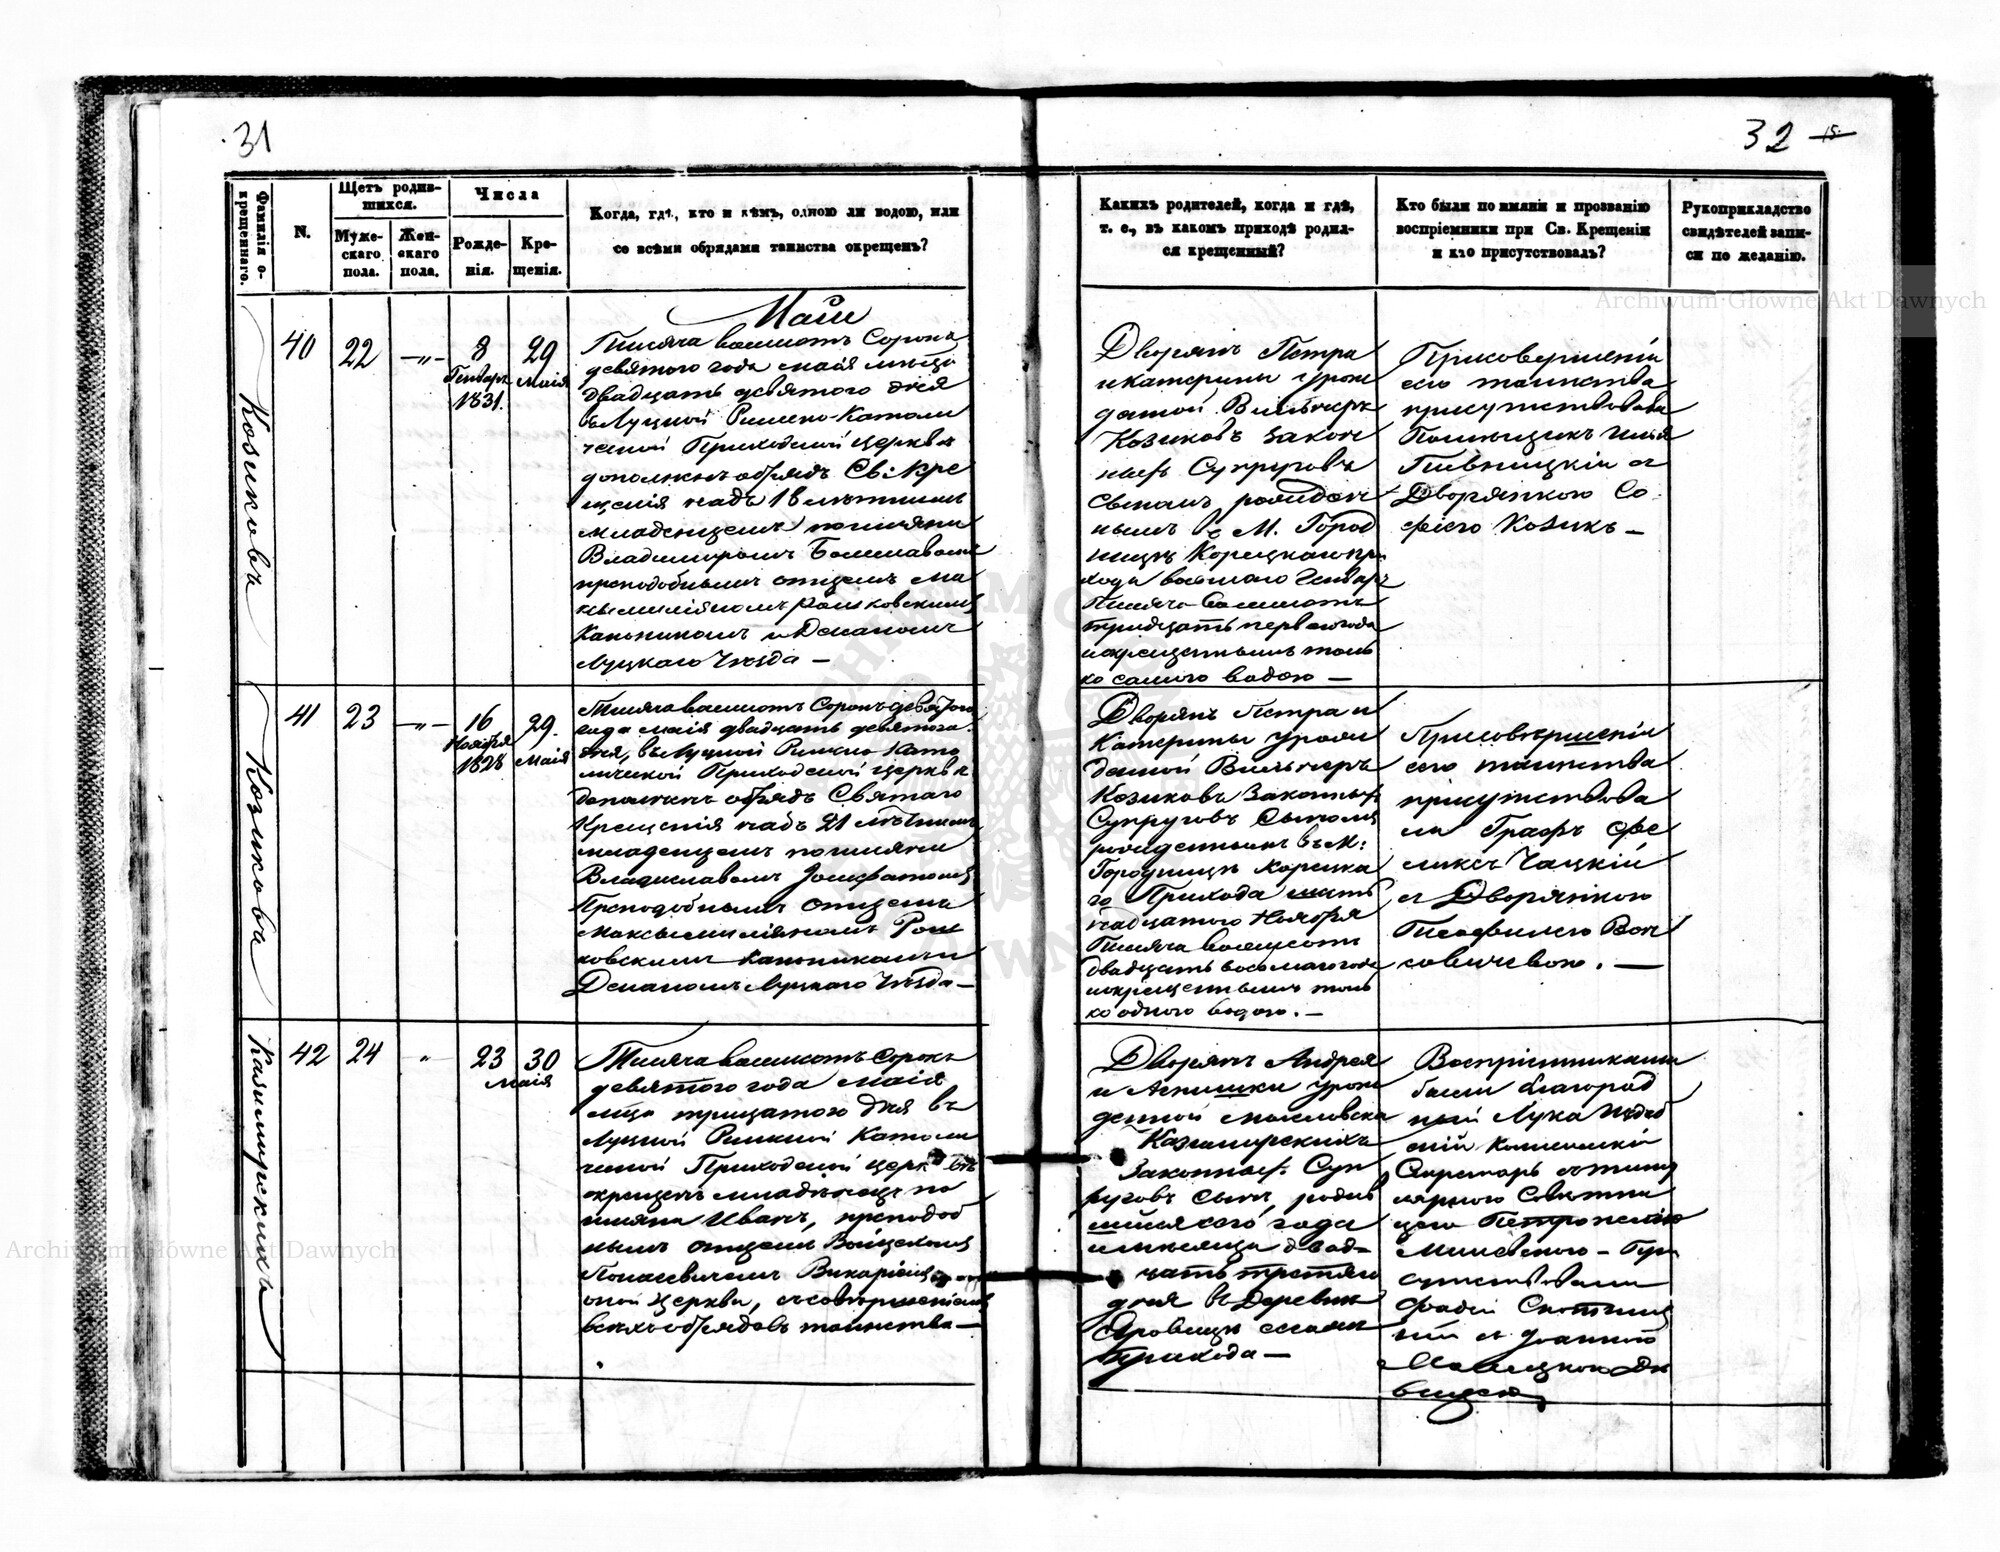 31
32
15.
Фамилія о-
крещеннаго.
N.
Щетъ родив-
шихся.
Муже-
скаго
пола.
Жен-
скаго
пола.
Числа
Рожде-
нія.
Кре-
щенія.
Когда, гдѣ, кто и кѣмъ, одною ли водою, или
со всѣми обрядами таинства окрещенъ?
Какихъ родителей, когда и гдѣ,
т. е., въ какомъ приходѣ родил-
ся крещенный?
Кто были по имяни и прозванію
воспріемники при Св. Крещеніи
и кто присутствовалъ?
Рукоприкладство
свидѣтелей запи-
си по желанію.
Archiwum Główne Akt Dawnych
Козиковъ
40
22
—"—
8
Генваря
1831.
29
Маія
Маій
Тисяча восмсотъ Сорокъ
девятого года маія мѣсца
двадцать девятого дня
въ Луцкой Римско-Катали
ческой Приходской церквѣ
дополненъ обрядъ Св: Кре
щенія надъ 18 лѣтнимъ
младенцемъ поимяни
Владимиромъ
преподобнымъ отцемъ Ма
ксимиліяномъ Рошковскимъ
Каноникомъ и Деканомъ
Луцкаго Уѣзда —
Дворянъ Петра
и Катерины урож
денной
Козиковъ закон
ныхъ Супруговъ
Сыномъ рожден
нымъ въ М. Город
ницѣ Корецкаго при
хода восмого Генваря
Тисяча восмсотъ
тридцать перваго года
и окрещеннымъ толь
ко самою водою —
Присовершеніи
сего таинства
присутствовали
Помѣщикъ Илія
Пивницкій съ
Дворянкою Со
фіею Козикъ —
Козиковъ
41
23
—"—
16
Ноября
1828
29
Маія
Тисяча восмсотъ Сорокъ девятого
года маія двадцать девятого
дня, въ Луцкой Римско Като
лической Приходской церквѣ
дополненъ обрядъ Святаго
Крещенія надъ 21 лѣтнимъ
младенцемъ поимяни
Владиславомъ Іосифатомъ
Преподобнымъ отцемъ
Максимиліяномъ Рош
ковскимъ Каноникомъ и
Деканомъ Луцкаго Уѣзда —
Дворянъ Петра и
Катерины урож
денной
Козиковъ Законныхъ
Супруговъ Сыномъ
рожденнымъ въ М:
Городницѣ Корецка
го Прихода шест
надцатого Ноября
Тисяча восмсотъ
двадцать восмаго года
и окрещеннымъ толь
ко одною водою. —
Присовершеніи
сего таинства
присутствова
ли Графъ Фе
ликсъ Чацкій
съ Дворянкою
Теофилею Вон
совичевою. —
Казимирскихъ
42
24
"
23
30
Маія
Тисяча восмсотъ Сорокъ
девятого года маія
мѣца трицатого дня въ
Луцкой Римской Катали
ческой Приходской церквѣ
окрещенъ младѣнецъ по
имяни Иванъ, преподоб
нымъ отцемъ Войцехомъ
Викаріемъ
оной церкви, съ совершеніемъ
всѣхъ обрядовъ таинства —
Дворянъ Андрея
и урож
денной
Казимирскихъ
Законныхъ Суп
руговъ сынъ, родив
шійся сего года
и мѣсяца двад-
цать третяго
дня въ Деревни
Прихода —
Воспріемниками
были благород
ный Лука
Секретарь съ титу
лярного Совѣтни
цею Петронелію
— При
сутствовали
съ Іоанною
дѣ
вицею
Archiwum Główne Akt Dawnych